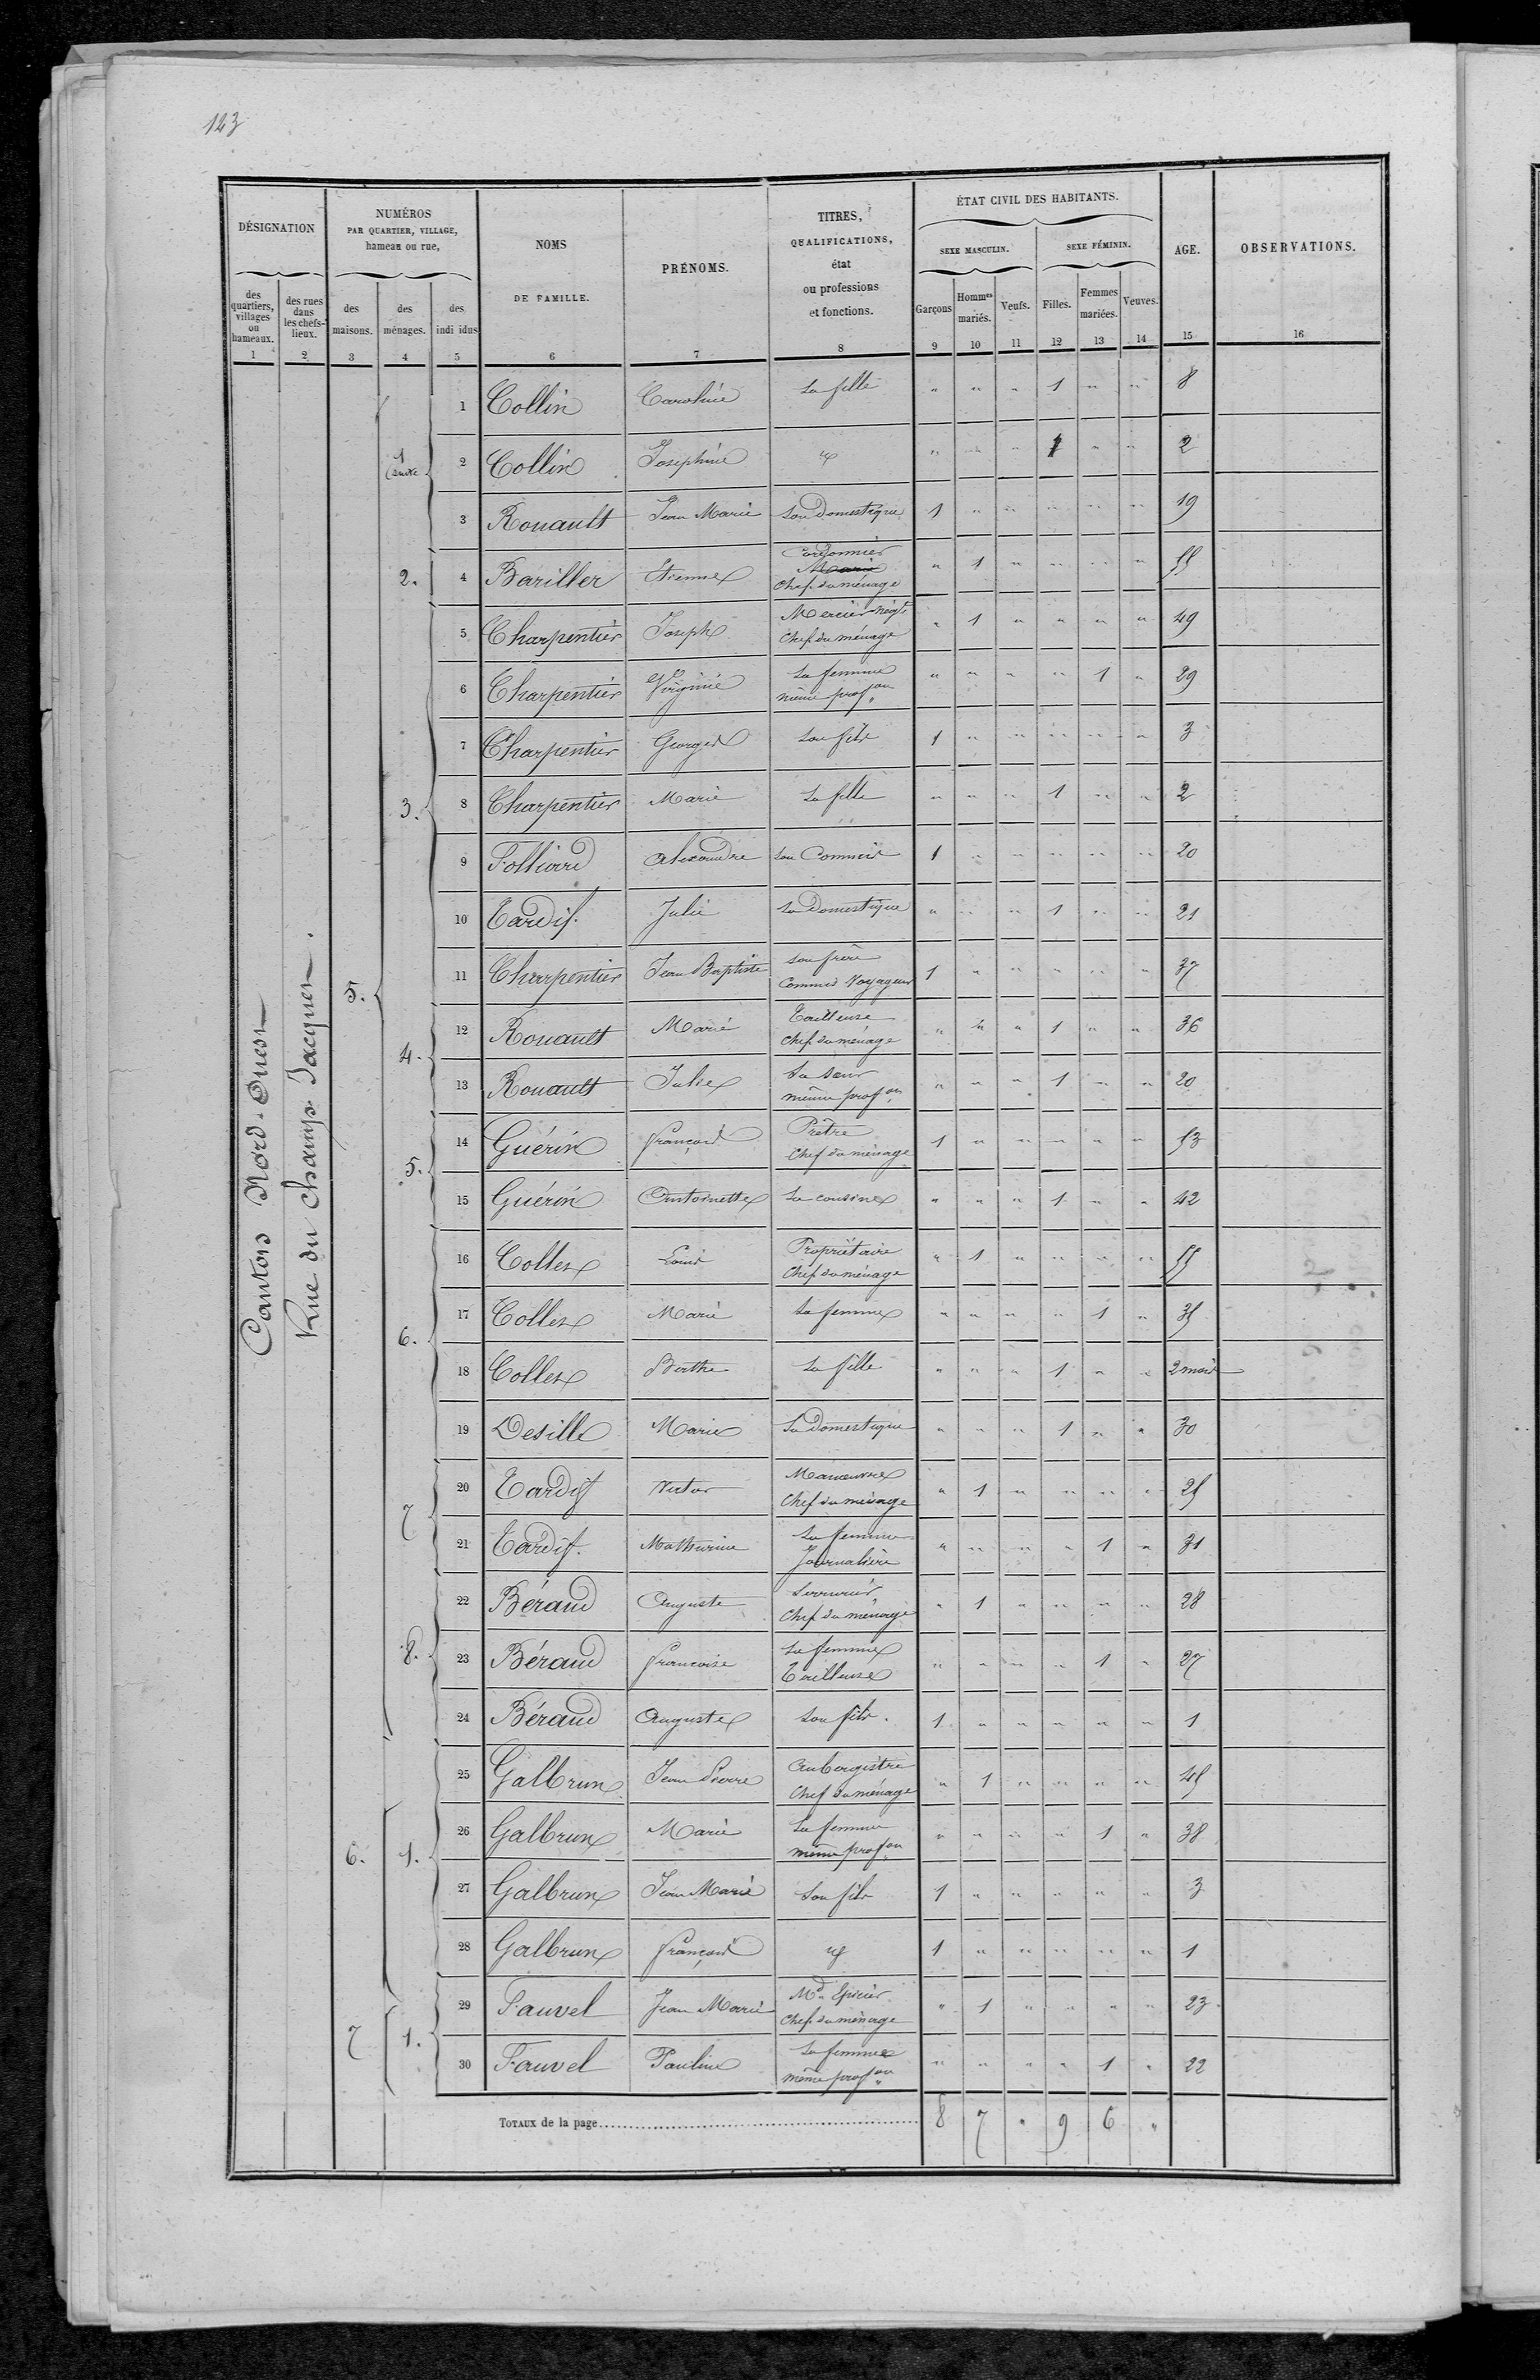 123
DÉSIGNATION
NUMÉROS
PAR QUARTIER, VILLAGE,
hameau ou rue,
NOMS
DE FAMILLE.
PRÉNOMS.
TITRES,
QUALIFICATIONS,
état
ou professions
et fonctions.
ÉTAT CIVIL DES HABITANTS.
SEXE MASCULIN.
SEXE FÉMININ.
AGE.
OBSERVATIONS.
des quartiers, villages ou hameaux.
des rues dans les chefs-lieux.
des maisons.
des ménages.
des indi idus
Garçons
Hommes mariés.
Veufs.
Filles.
Femmes mariées.
Veuves.
1 2 3 4 5 6 7 8 9 10 11 12 13 14 15 16
Canton Nord-Ouest
Rue du Champ Jacquet.
5. 1 suite 1 Collin Caroline Sa fille " " " 1 " " 8
2 Collin Joséphine id " " " 1 " " 2
3 Rouault Jean Marie Son Domestique 1 " " " " " 19
2. 4 Bariller Etienne Cordonnier Marié Chef du ménage " 1 " " " " 55
3. 5 Charpentier Joseph Mercier négt. Chef du ménage " 1 " " " " 49
6 Charpentier Virginie Sa femme même profon " " " " 1 " 29
7 Charpentier Georges Son fils 1 " " " " " 3
8 Charpentier Marie Sa fille " " " 1 " " 2
9 Folliard Alexandre Son Commis 1 " " " " " 20
10 Tardif. Julie Sa Domestique " " " 1 " " 21
11 Charpentier Jean Baptiste Son frère Commis Voyageur 1 " " " " " 37
4. 12 Rouault Marie Tailleuse Chef du ménage " " " 1 " " 36
13 Rouault Julie Sa sœur même profon " " " 1 " " 20
5. 14 Guérin François Prêtre Chef du ménage 1 " " " " " 53
15 Guérin Antoinette Sa cousine " " " 1 " " 42
6. 16 Collez Louis Propriétaire Chef du ménage " 1 " " " " 55
17 Collez Marie Sa femme " " " " 1 " 35
18 Collez Berthe Sa fille " " " 1 " " 2 mois
19 Desille Marie Sa Domestique " " " 1 " " 30
7 20 Tardif Victor Manœuvre Chef du ménage " 1 " " " " 25
21 Tardif. Mathurine Sa femme Journalière " " " " 1 " 31
8. 22 Béraud Auguste Serrurier Chef du ménage " 1 " " " " 28
23 Béraud Françoise Sa femme Tailleuse " " " " 1 " 27
24 Béraud Auguste Son fils. 1 " " " " " 1
6. 1. 25 Galbrun Jean Pierre Aubergiste Chef du ménage " 1 " " " " 45
26 Galbrun Marie Sa femme même profon " " " " 1 " 38
27 Galbrun Jean Marie Son fils 1 " " " " " 3
28 Galbrun François id 1 " " " " " 1
7 1. 29 Fauvel Jean Marie Md Epicier Chef du ménage " 1 " " " " 23
30 Fauvel Pauline Sa femme même profon " " " " 1 " 22
TOTAUX de la page 8 7 " 9 6 "